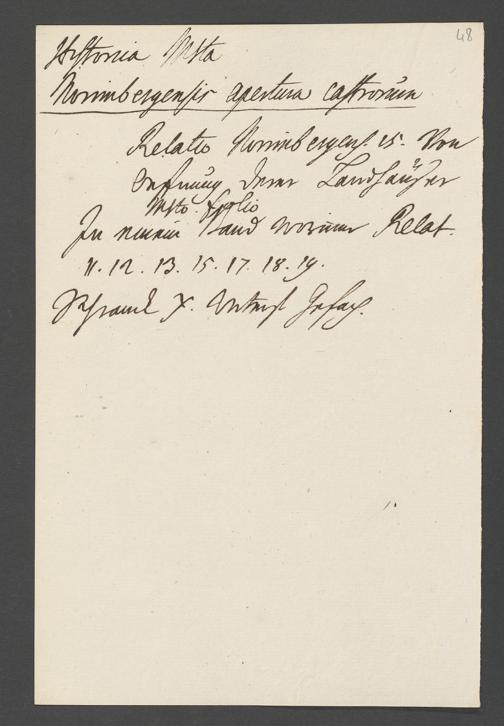 48
Historia Msta
Norimbergensis apertura castrorum
Relatio Norimbergens. 15. Von
Oefnung derer Landhäußer
Msto. folio
In einem Band worinn Relat.
11. 12. 13. 15. 17. 18. 19.
Schranck X. Unterst Gefach.